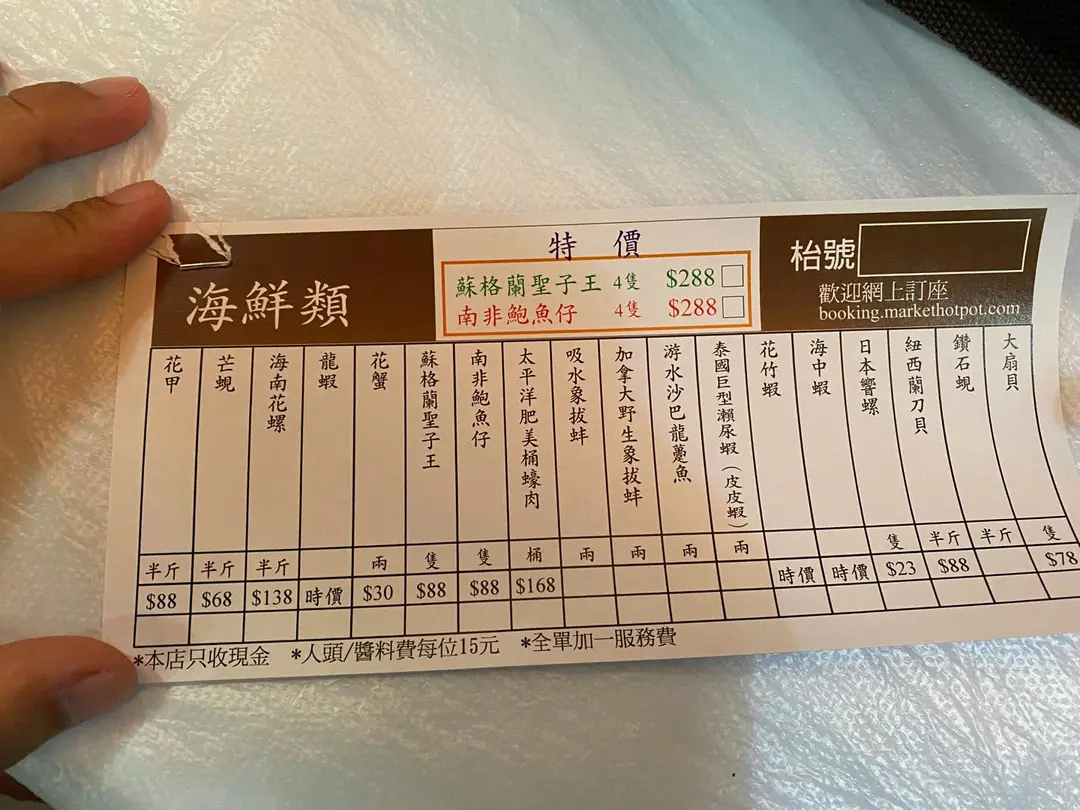 海鮮類
特價
蘇格蘭聖子王 4隻 $288
南非鮑魚仔 4隻 $288
枱號
歡迎網上訂座
booking.markethotpot.com
花甲 半斤 $88
芒蜆 半斤 $68
海南花螺 半斤 $138
龍蝦 時價
花蟹 兩 $30
蘇格蘭聖子王 隻 $88
南非鮑魚仔 隻 $88
太平洋肥美桶蠔肉 桶 $168
吸水象拔蚌 兩
加拿大野生象拔蚌 兩
游水沙巴龍躉魚 兩
泰國巨型瀨尿蝦（皮皮蝦） 兩
花竹蝦 時價
海中蝦 時價
日本響螺 隻 $23
紐西蘭刀貝 半斤 $88
鑽石蜆 半斤
大扇貝 隻 $78
*本店只收現金 *人頭/醬料費每位15元 *全單加一服務費